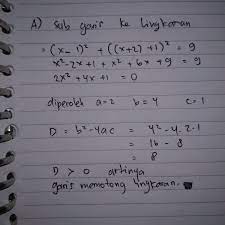 A) Sub garis ke lingkaran
= (x - 1)² + ((x+2) + 1)² = 9
x² - 2x + 1 + x² + 6x + 9 = 9
2x² + 4x + 1 = 0
diperoleh a = 2 b = 4 c = 1
D = b² - 4ac = 4² - 4.2.1
= 16 - 8
= 8
D > 0 artinya
garis memotong lingkaran.